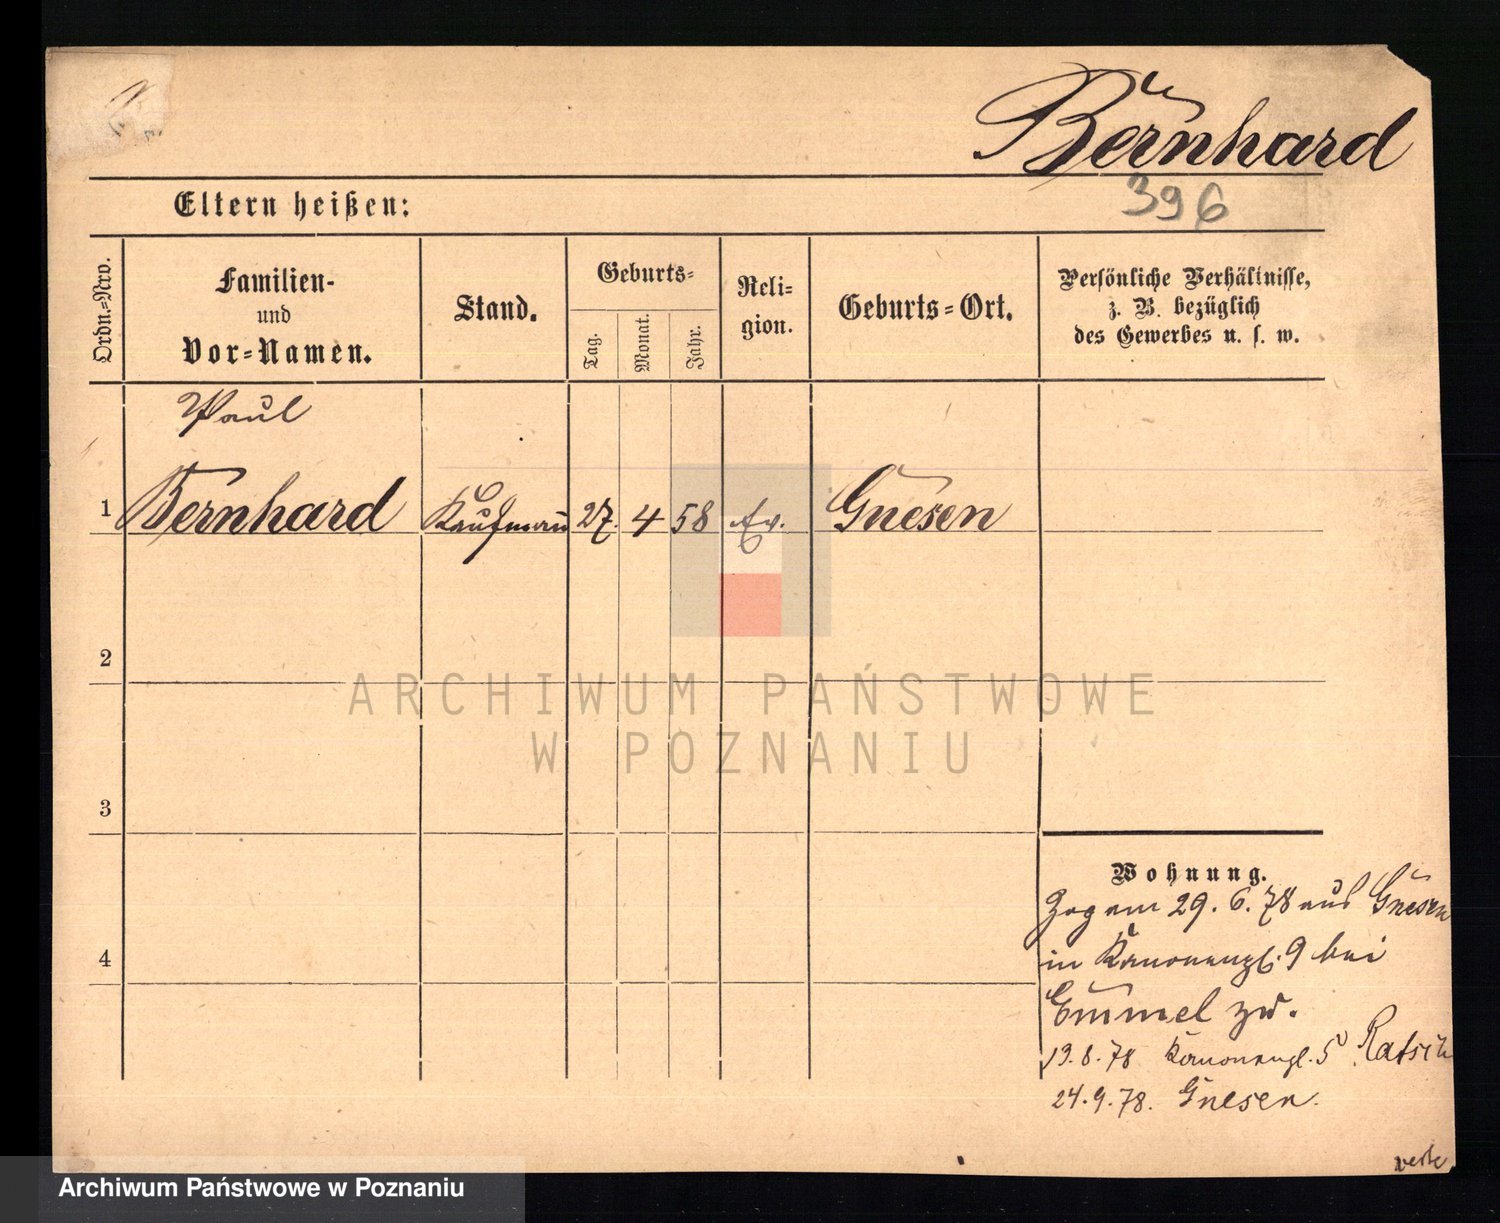 Bernhard
396
Eltern heißen:
Ordn.-Nro.
Familien-
und
Vor-Namen.
Stand.
Geburts-
Tag.
Monat.
Jahr.
Reli-
gion.
Geburts-Ort.
Persönliche Verhältnisse,
z. B. bezüglich
des Gewerbes u. s. w.
Paul
1 Bernhard Kaufmann 27. 4 58 Ev. Gnesen
2
3
4
Wohnung.
Zog am 29. 6. 78 aus Gnesen
in Kanonenpl. 9 bei
Emmel zu.
13.8.78 Kanonenpl. 5
24.9.78. Gnesen.
verte
ARCHIWUM PAŃSTWOWE
W POZNANIU
Archiwum Państwowe w Poznaniu